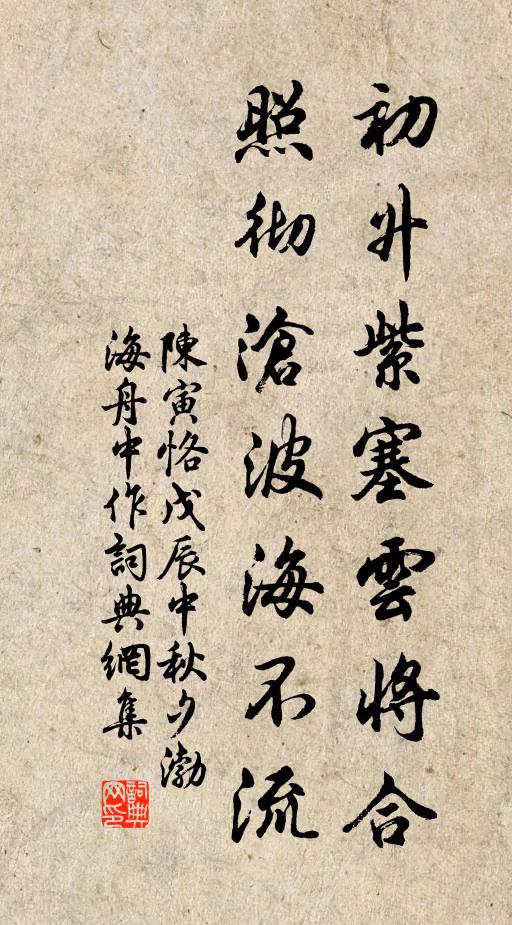 初升紫塞雲將合
照彻滄波海不流
陳寅恪戊辰中秋夕渤
海舟中作詞典網集
詞典网印